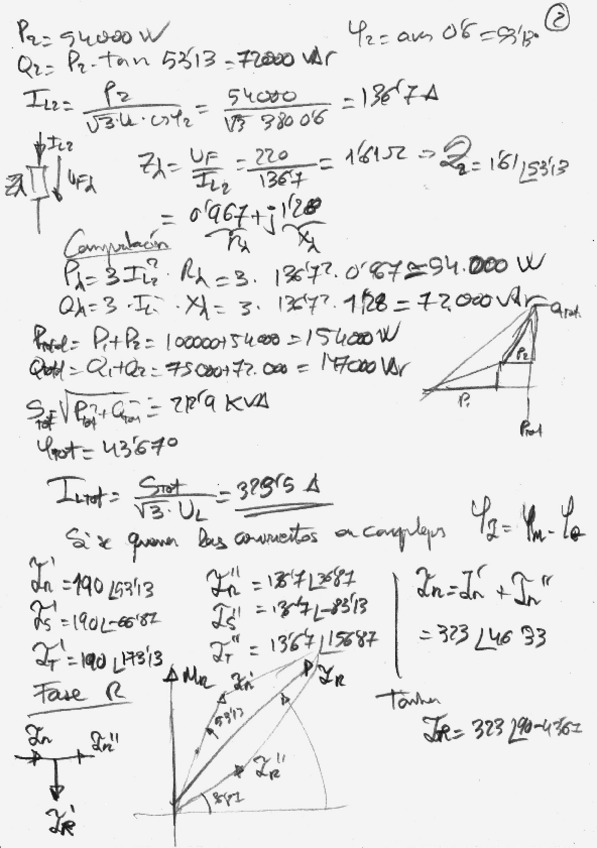 2
P2 = 54000 W    φ2 = arcos 0'6 = 53'13º
Q2 = P2 · tan 53'13 = 72000 VAr
IL2 = P2 / (√3 · U · cos φ2) = 54000 / (√3 380 0'6) = 136'7 A
IL2
Zλ
UFλ
Zλ = UF / IL2 = 220 / 136'7 = 1'61 Ω ⇒ Z2 = 1'61 ∠53'13
= 0'967 + j 1'28
Rλ    Xλ
Comprobación
Pλ = 3 IL2² · Rλ = 3 · 136'7² · 0'967 ≅ 54.000 W
Qλ = 3 · IL² · Xλ = 3 · 136'7² · 1'28 = 72.000 VAr
Ptotal = P1 + P2 = 100000 + 54000 = 154000 W
Qtotal = Q1 + Q2 = 75000 + 72.000 = 147000 VAr
Stot = √(Ptot² + Qtot²) = 212'9 KVA
φtot = 43'67º
Qtot.
P2
P1
Ptot
ILtot = Stot / (√3 · UL) = 323'5 A
Si se quieren las corrientes en complejos    φI = φu - φZ
IR' = 190 ∠53'13    IR'' = 136'7 ∠36'87    IR = IR' + IR''
IS' = 190 ∠-66'87    IS'' = 136'7 ∠-83'13    = 323 ∠46'33
IT' = 190 ∠173'13    IT'' = 136'7 ∠156'87
Fase R    UR    IR'    IR
También
IR = 323 ∠90-43'67
53'13
IR    IR''
IR'
IR''
36'87